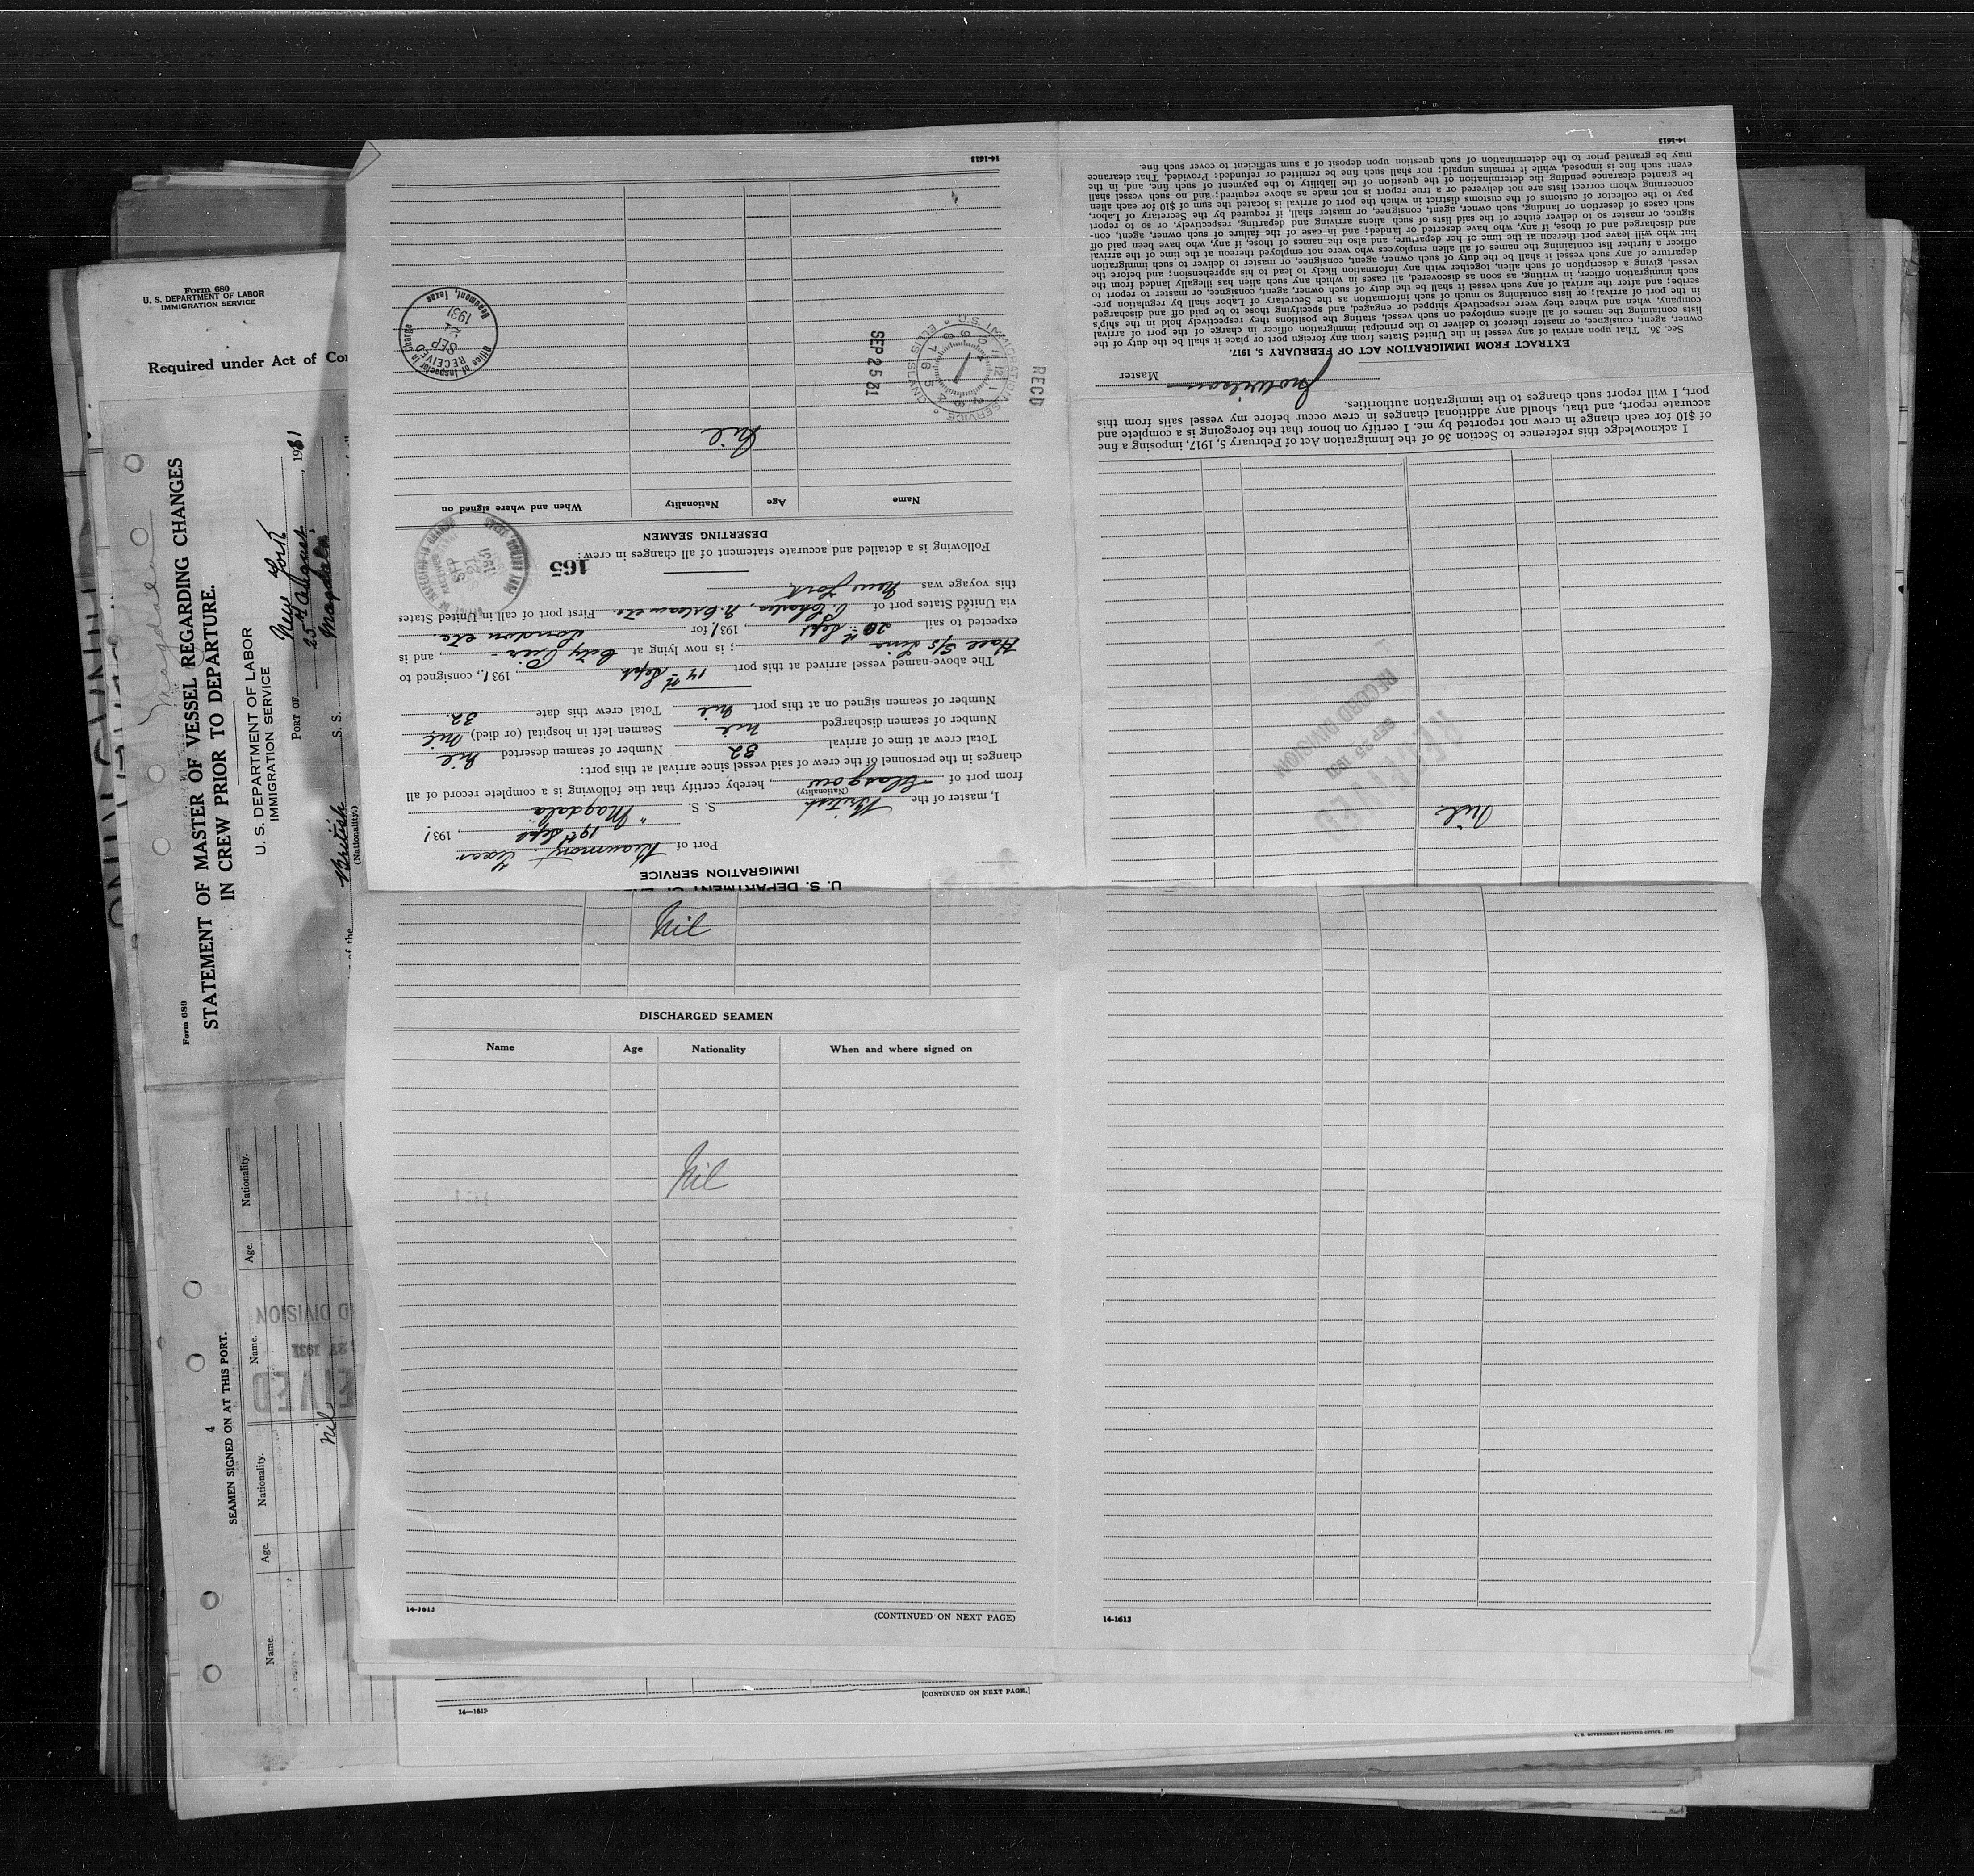 Form 680
U. S. DEPARTMENT OF LABOR
IMMIGRATION SERVICE
Required under Act of Co
Magdale
Form 680
STATEMENT OF MASTER OF VESSEL REGARDING CHANGES
IN CREW PRIOR TO DEPARTURE.
U. S. DEPARTMENT OF LABOR
IMMIGRATION SERVICE
PORT OF New York
25th August, 1931
British S. S. Magdala
(Nationality.)
4
SEAMEN SIGNED ON AT THIS PORT.
Name. Age. Nationality. Name. Age. Nationality.
Nil
D DIVISION
27 1931
EIVED
IMMIGRATION SERVICE
Port of Beaumont Texas
19th Sept, 1931
I, master of the British S. S. "Magdala
(Nationality)
from port of Glasgow, hereby certify that the following is a complete record of all
changes in the personnel of the crew of said vessel since arrival at this port:
Total crew at time of arrival 32 Number of seamen deserted Nil
Number of seamen discharged Nil Seamen left in hospital (or died) Nil
Number of seamen signed on at this port Nil Total crew this date 32.
The above-named vessel arrived at this port 14th Sept, 1931, consigned to
Hall S/S Line; is now lying at City Pier, and is
expected to sail 20th Sept, 1931 for London etc.
via United States port of L. Charles, N. Orleans etc. First port of call in United States
this voyage was New York
165
Following is a detailed and accurate statement of all changes in crew:
DESERTING SEAMEN
Name Age Nationality When and where signed on
Nil
RECD
IMMIGRATION SERVICE
ELLIS ISLAND
SEP 25 31
Office of Inspector in Charge
RECEIVED
SEP
1931
Beaumont, Texas
14-1613
Nil
RECEIVED
SEP 25 1931
RECORD DIVISION
I acknowledge this reference to Section 36 of the Immigration Act of February 5, 1917, imposing a fine
of $10 for each change in crew not reported by me. I certify on honor that the foregoing is a complete and
accurate report, and that, should any additional changes in crew occur before my vessel sails from this
port, I will report such changes to the immigration authorities.
Jno Wilson Master
EXTRACT FROM IMMIGRATION ACT OF FEBRUARY 5, 1917.
Sec. 36. That upon arrival of any vessel in the United States from any foreign port or place it shall be the duty of the
owner, agent, consignee, or master thereof to deliver to the principal immigration officer in charge of the port of arrival
lists containing the names of all aliens employed on such vessel, stating the positions they respectively hold in the ship's
company, when and where they were respectively shipped or engaged, and specifying those to be paid off and discharged
in the port of arrival; or lists containing so much of such information as the Secretary of Labor shall by regulation pre-
scribe; and after the arrival of any such vessel it shall be the duty of such owner, agent, consignee, or master to report to
such immigration officer, in writing, as soon as discovered, all cases in which any such alien has illegally landed from the
vessel, giving a description of such alien, together with any information likely to lead to his apprehension; and before the
departure of any such vessel it shall be the duty of such owner, agent, consignee, or master to deliver to such immigration
officer a further list containing the names of all alien employees who were not employed thereon at the time of the arrival
but who will leave port thereon at the time of her departure, and also the names of those, if any, who have been paid off
and discharged and of those, if any, who have deserted or landed; and in case of the failure of such owner, agent, con-
signee, or master so to deliver either of the said lists of such aliens arriving and departing, respectively, or so to report
such cases of desertion or landing, such owner, agent, consignee, or master, shall, if required by the Secretary of Labor,
pay to the collector of customs of the customs district in which the port of arrival is located the sum of $10 for each alien
concerning whom correct lists are not delivered or a true report is not made as above required; and no such vessel shall
be granted clearance pending the determination of the question of the liability to the payment of such fine, and, in the
event such fine is imposed, while it remains unpaid; nor shall such fine be remitted or refunded: Provided, That clearance
may be granted prior to the determination of such question upon deposit of a sum sufficient to cover such fine.
14-1613
Nil
DISCHARGED SEAMEN
Name Age Nationality When and where signed on
Nil
14-1613
(CONTINUED ON NEXT PAGE)
14-1613
[CONTINUED ON NEXT PAGE.]
14—1613
U. S. GOVERNMENT PRINTING OFFICE